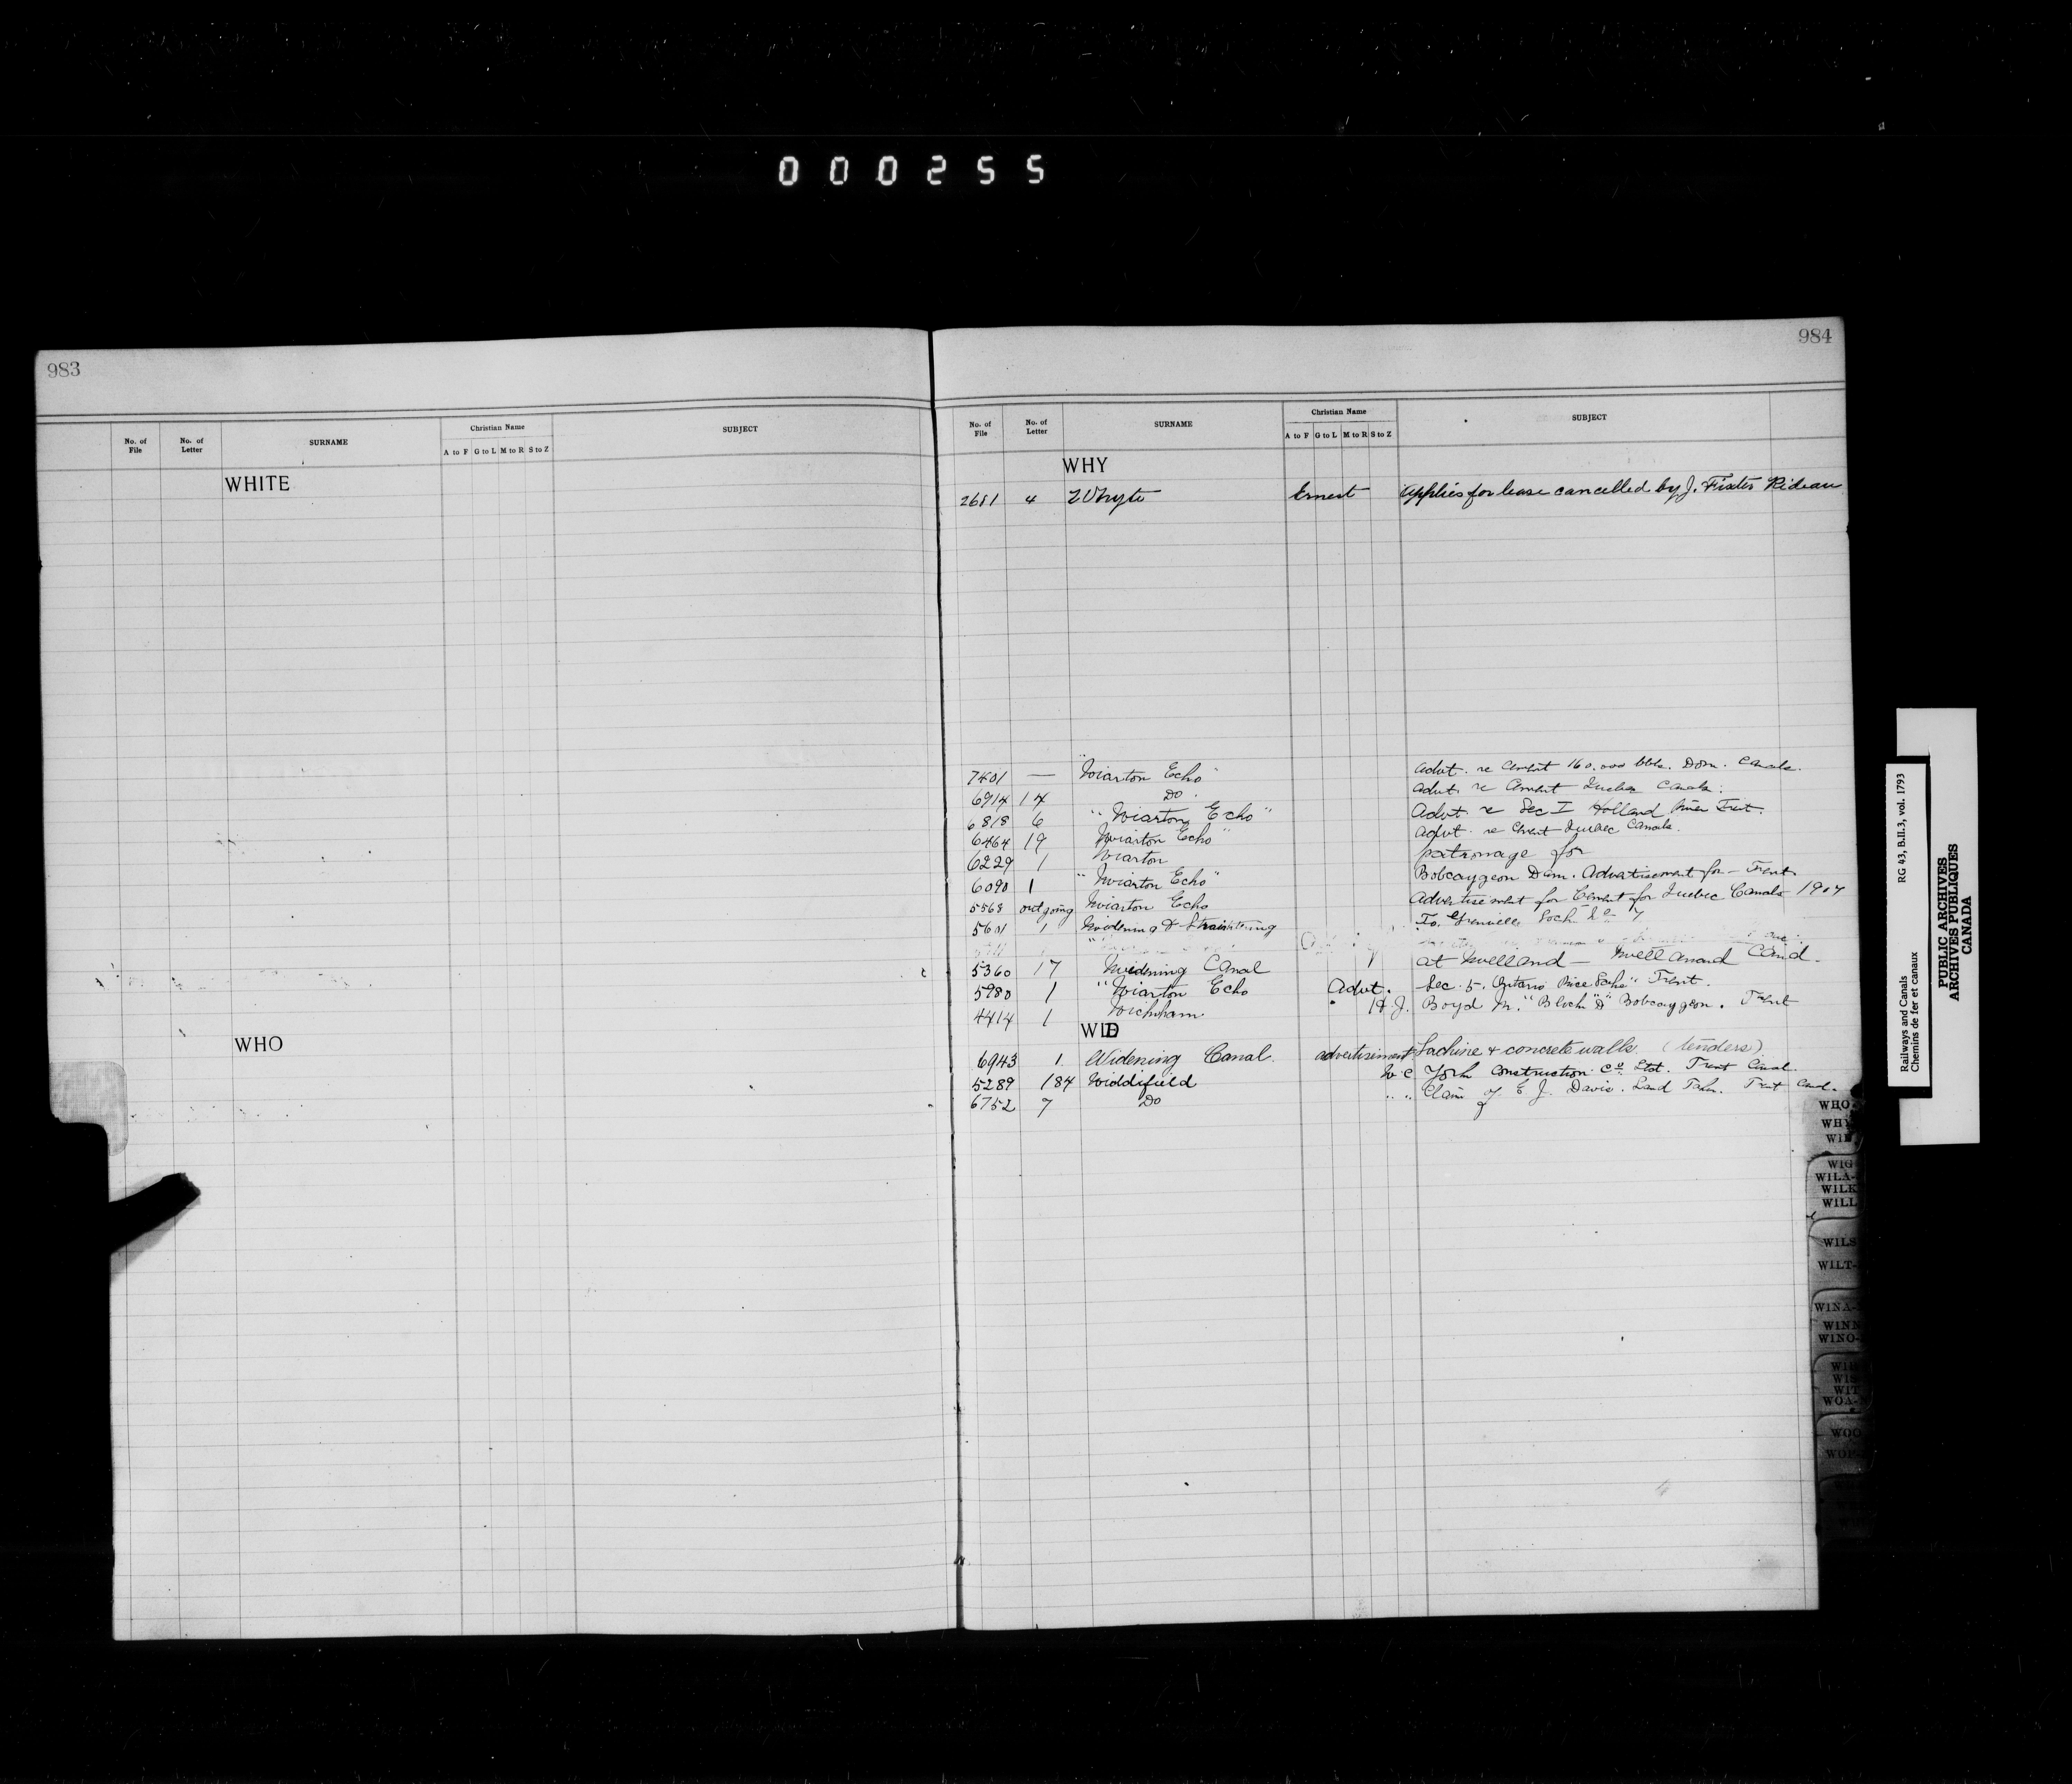 000255
983
No. of File No. of Letter SURNAME Christian Name SUBJECT
A to F G to L M to R S to Z
WHITE
WHO
984
No. of File No. of Letter SURNAME Christian Name SUBJECT
A to F G to L M to R S to Z
WHY
2681 4 Whyte Ernest Applies for lease cancelled by J. Fixter Rideau
7401 — "Wiarton Echo" Advt. re Cement 160,000 bbls. Dom. Canals.
6914 14 Do. Advt. re Cement Quebec Canals.
6818 6 "Wiarton Echo" Advt. re Sec I Holland River Trent.
6464 19 Wiarton Echo" Advt. re Cement Quebec Canals.
6229 1 Wiarton patronage for
6090 1 "Wiarton Echo" Bobcaygeon Dam. Advertisement for — Trent
5568 outgoing Wiarton Echo Advertisement for Cement for Quebec Canals 1907
5601 1 Widening & Straightening To Grenville Lock No 7
5360 17 Widening Canal at Welland — Welland Canal.
5980 1 "Wiarton Echo Advt. Sec. 5. Ontario Rice Lake" Trent.
4414 1 H. J. Boyd M. "Block "D" Bobcaygeon. Trent
WID
6943 1. Widening Canal. advertisement Lachine & concrete walls (tenders)
5289 184 Widdifield W. C. York Construction Co. Ltd. Trent Canal.
6752 7 Do " " Claim of E. J. Davis. Land Taken. Trent Canal.
WHO
WHY
WIG
WILA-
WILK
WILL
WILS
WILT-
WINA-
WINN
WINO-
WIS
WIT
WOA-
WOO
Railways and Canals RG 43, B.II.3, vol. 1793
Chemins de fer et canaux
PUBLIC ARCHIVES
ARCHIVES PUBLIQUES
CANADA